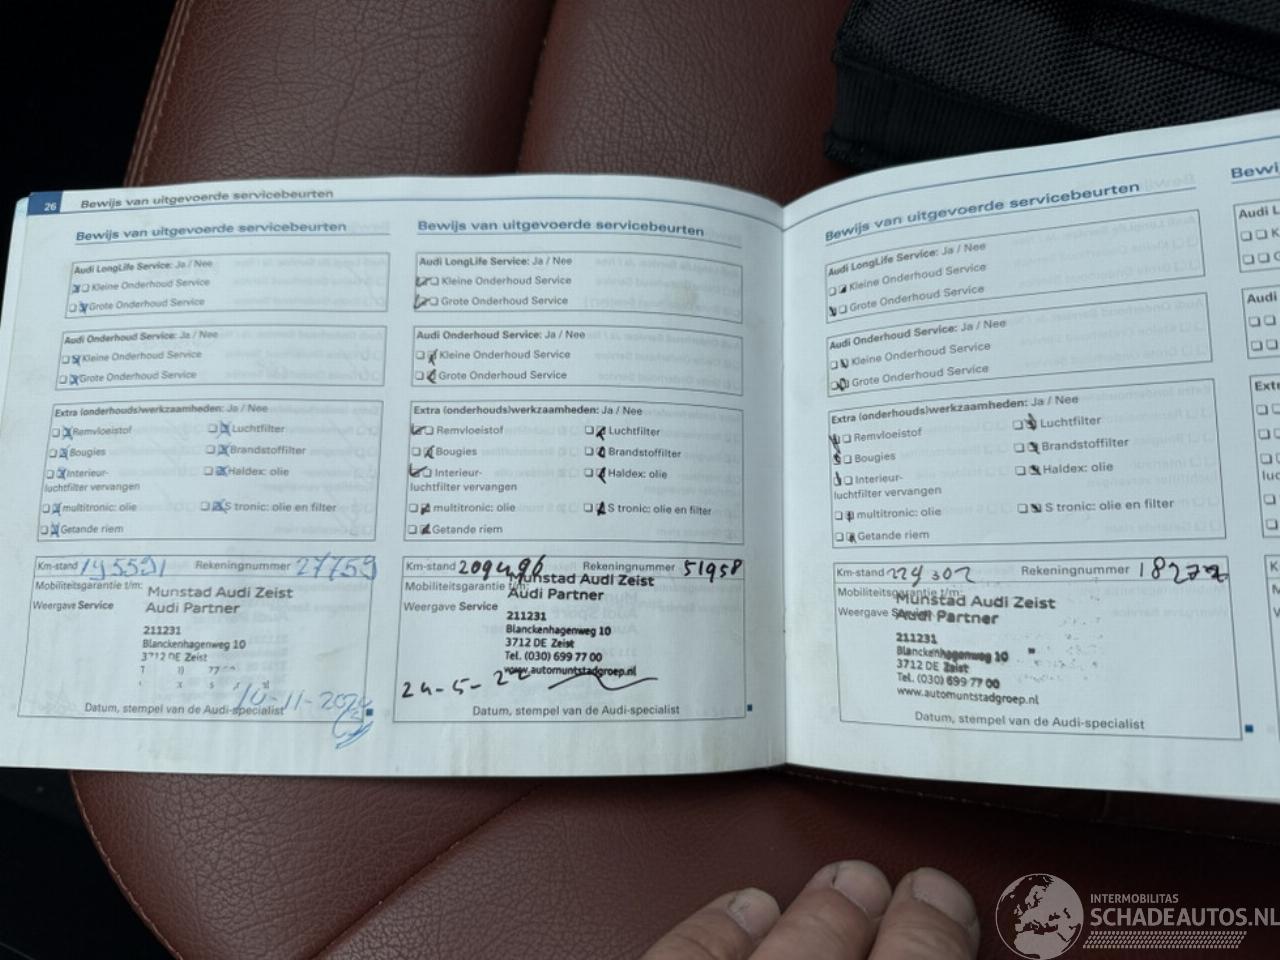 26 Bewijs van uitgevoerde servicebeurten
Bewijs van uitgevoerde servicebeurten
Audi LongLife Service: Ja / Nee
Kleine Onderhoud Service
Grote Onderhoud Service
Audi Onderhoud Service: Ja / Nee
Kleine Onderhoud Service
Grote Onderhoud Service
Extra (onderhouds)werkzaamheden: Ja / Nee
Remvloeistof Luchtfilter
Bougies Brandstoffilter
Interieur- Haldex: olie
luchtfilter vervangen
multitronic: olie S tronic: olie en filter
Getande riem
Km-stand 195591 Rekeningnummer 27759
Mobiliteitsgarantie t/m:
Weergave Service
Munstad Audi Zeist
Audi Partner
211231
Blanckenhagenweg 10
3712 DE Zeist
Datum, stempel van de Audi-specialist
Bewijs van uitgevoerde servicebeurten
Audi LongLife Service: Ja / Nee
Kleine Onderhoud Service
Grote Onderhoud Service
Audi Onderhoud Service: Ja / Nee
Kleine Onderhoud Service
Grote Onderhoud Service
Extra (onderhouds)werkzaamheden: Ja / Nee
Remvloeistof Luchtfilter
Bougies Brandstoffilter
Interieur- Haldex: olie
luchtfilter vervangen
multitronic: olie S tronic: olie en filter
Getande riem
Km-stand 209496 Rekeningnummer 51958
Mobiliteitsgarantie t/m:
Weergave Service
Munstad Audi Zeist
Audi Partner
211231
Blanckenhagenweg 10
3712 DE Zeist
Tel. (030) 699 77 00
www.automuntstadgroep.nl
24-5-22
Datum, stempel van de Audi-specialist
Bewijs van uitgevoerde servicebeurten
Audi LongLife Service: Ja / Nee
Kleine Onderhoud Service
Grote Onderhoud Service
Audi Onderhoud Service: Ja / Nee
Kleine Onderhoud Service
Grote Onderhoud Service
Extra (onderhouds)werkzaamheden: Ja / Nee
Remvloeistof Luchtfilter
Bougies Brandstoffilter
Interieur- Haldex: olie
luchtfilter vervangen
multitronic: olie S tronic: olie en filter
Getande riem
Km-stand 229302 Rekeningnummer
Mobiliteitsgarantie t/m:
Weergave Service
Munstad Audi Zeist
Audi Partner
211231
Blanckenhagenweg 10
3712 DE Zeist
Tel. (030) 699 77 00
www.automuntstadgroep.nl
Datum, stempel van de Audi-specialist
Audi
Audi
Extra
INTERMOBILITAS
SCHADEAUTOS.NL